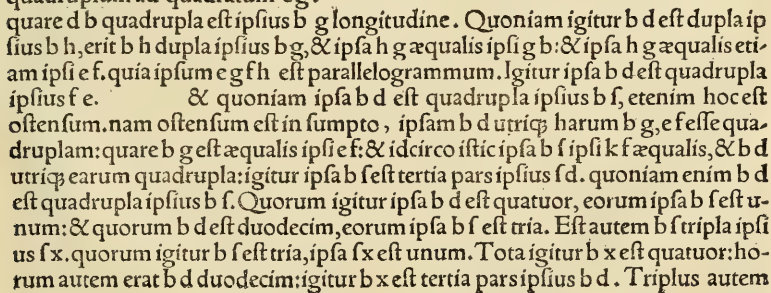 quare d b quadrupla eſt ipſius b g longitudine. Quoniam igitur b d eſt dupla ip
ſius b h, erit b h dupla ipſius bg, & ipſa h g æqualis ipſi g b: & ipſa h g æqualis eti-
am ipſi e f. quia ipſum e g f h eſt parallelogrammum. Igitur ipſa b d eſt quadrupla
ipſius f e. & quoniam ipſa b d eſt quadrupla ipſius b ſ, etenim hoc eſt
oſtenſum. nam oſtenſum eſt in ſumpto, ipſam b d utriq; harum b g, e f eſſe qua-
druplam: quare b g eſt æqualis ipſi e f: & idcirco iſtic ipſa b ſ ipſi k f æqualis, & b d
utriq; earum quadrupla: igitur ipſa b ſ eſt tertia pars ipſius ſ d. quoniam enim b d
eſt quadrupla ipſius b ſ. Quorum igitur ipſa b d eſt quatuor, eorum ipſa b ſ eſt u-
num: & quorum b d eſt duodecim, eorum ipſa b ſ eſt tria. Eſt autem b ſ tripla ipſi
us ſ x. quorum igitur b ſ eſt tria, ipſa ſ x eſt unum. Tota igitur b x eſt quatuor: ho-
rum autem erat b d duodecim: igitur b x eſt tertia pars ipſius b d. Triplus autem